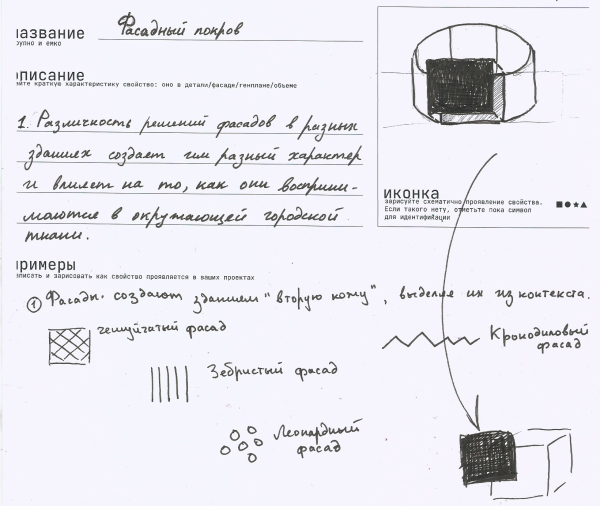 название
крупно и емко
Фасадный покров
описание
дайте краткую характеристику свойство: оно в детали/фасаде/генплане/объеме
1. Различность решений фасадов в разных
зданиях создает им разный характер
и влияет на то, как они восприни-
маются в окружающей городской
ткани.
иконка
зарисуйте схематично проявление свойства.
Если такого нету, отметьте пока символ
для идентификации
■●★▲
примеры
описать и зарисовать как свойство проявляется в ваших проектах
① Фасады создают зданием "вторую кожу", выделяя их из контекста.
чешуйчатый фасад
Крокодиловый
фасад
Зебристый фасад
Леопардный
фасад